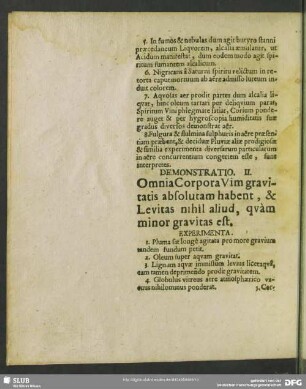 5. In fumos & nebulas dum agit butyro stanni
præcedaneum Liquorem, alcalia æmulatur, ut
Acidum manifestat, dum eodem modo agit spi-
ritum fumantem alcalicum.
6. Nigricans à Saturni spiritu relictum in re-
torta caput mortuum ab aëre admisso luteum in-
duit colorem.
7. Aqueolas aer prodit partes dum alcalia li-
quat, hinc oleum tartari per deliquium parat,
Spiritum Vini phlegmate satiat, Corium ponde-
re auget & per hygroscopia humiditatis suæ
gradus diversos demonstrat aër.
8. Fulgura & fulmina sulphuris in aëre præsen-
tiam præbent, & decidua Pluviæ aliæ prodigiosæ
& similia experimenta diversarum particularum
in aëre concurrentium congeriem esse, sunt
interpretes.
DEMONSTRATIO. II.
Omnia Corpora Vim gravi-
tatis absolutam habent, &
Levitas nihil aliud, quàm
minor gravitas est.
EXPERIMENTA.
1. Pluma sat longè agitata pro more gravium
tandem fundum petit.
2. Oleum super aquam gravitat.
3. Lignum aquæ immissum levans licet aqua,
eam tamen deprimendo prodit gravitatem.
4. Globulus vitreus aere atmosphærico va-
cuus nihilominus ponderat.
5. Cor-
SLUB
DFG